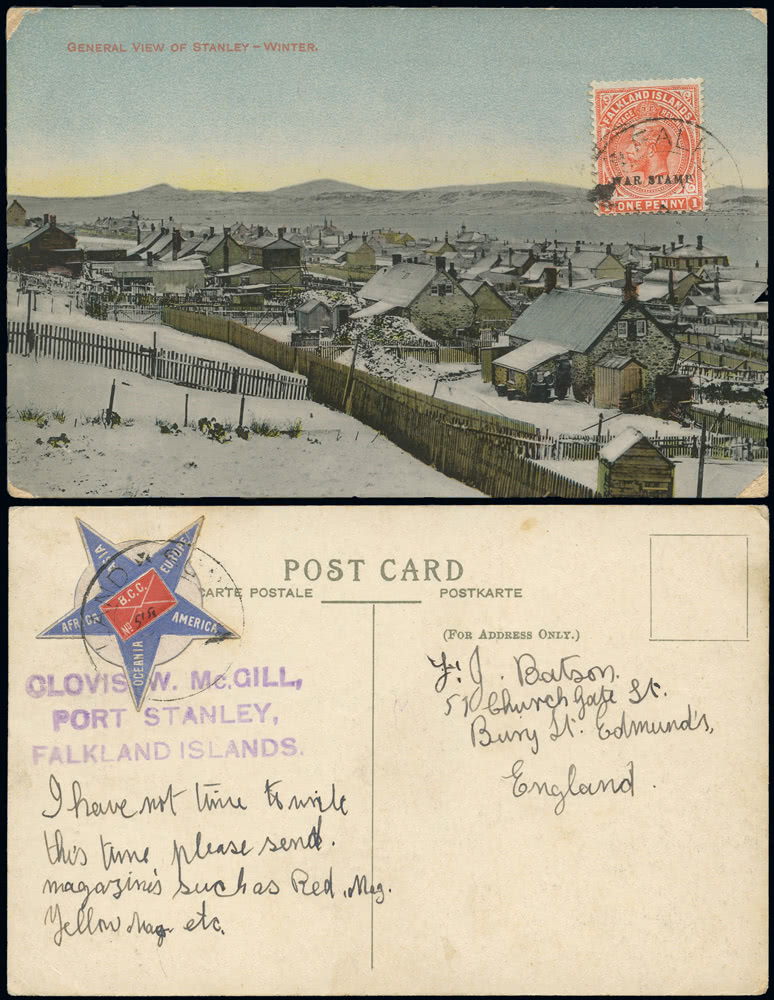 GENERAL VIEW OF STANLEY – WINTER.
FALKLAND ISLANDS
POSTAGE
WAR STAMP
1 ONE PENNY 1
FALK
POST CARD
CARTE POSTALE
POSTKARTE
(FOR ADDRESS ONLY.)
ASIA
EUROPE
AFRICA
AMERICA
OCEANIA
B.C.C.
No
CLOVIS W. Mc.GILL,
PORT STANLEY,
FALKLAND ISLANDS.
I have not time to write
this time please send.
magazines such as Red. Mag.
Yellow Mag. etc.
J. Batson.
51 Church Gate St.
Bury St. Edmund's,
England.